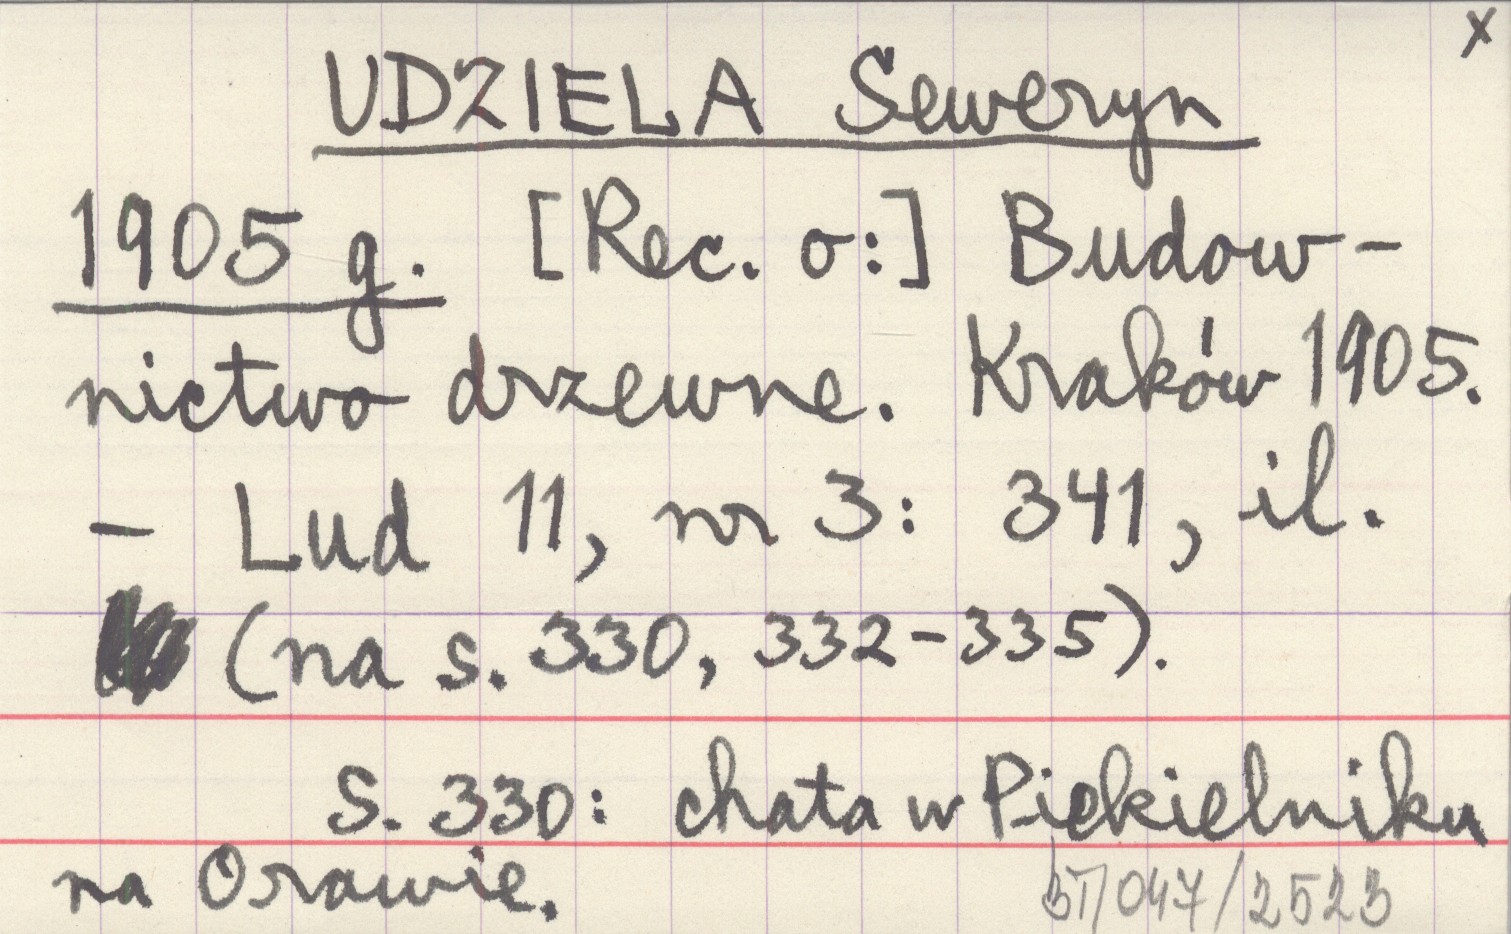 x
UDZIELA Seweryn
1905 g. [Rec. o:] Budow-
nictwo drzewne. Kraków 1905.
- Lud 11, nr 3: 341, il.
(na s. 330, 332-335).
S. 330: chata w Piekielniku
na Orawie.
BT/047/2523